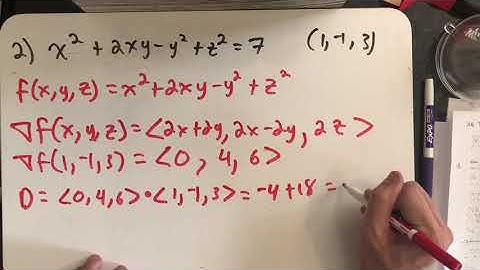 2) x² + 2xy - y² + z² = 7 (1, -1, 3)
f(x,y,z) = x² + 2xy - y² + z²
∇f(x,y,z) = <2x+2y, 2x-2y, 2z>
∇f(1,-1,3) = <0, 4, 6>
D = <0,4,6> • <1,-1,3> = -4 + 18 =
EXPO